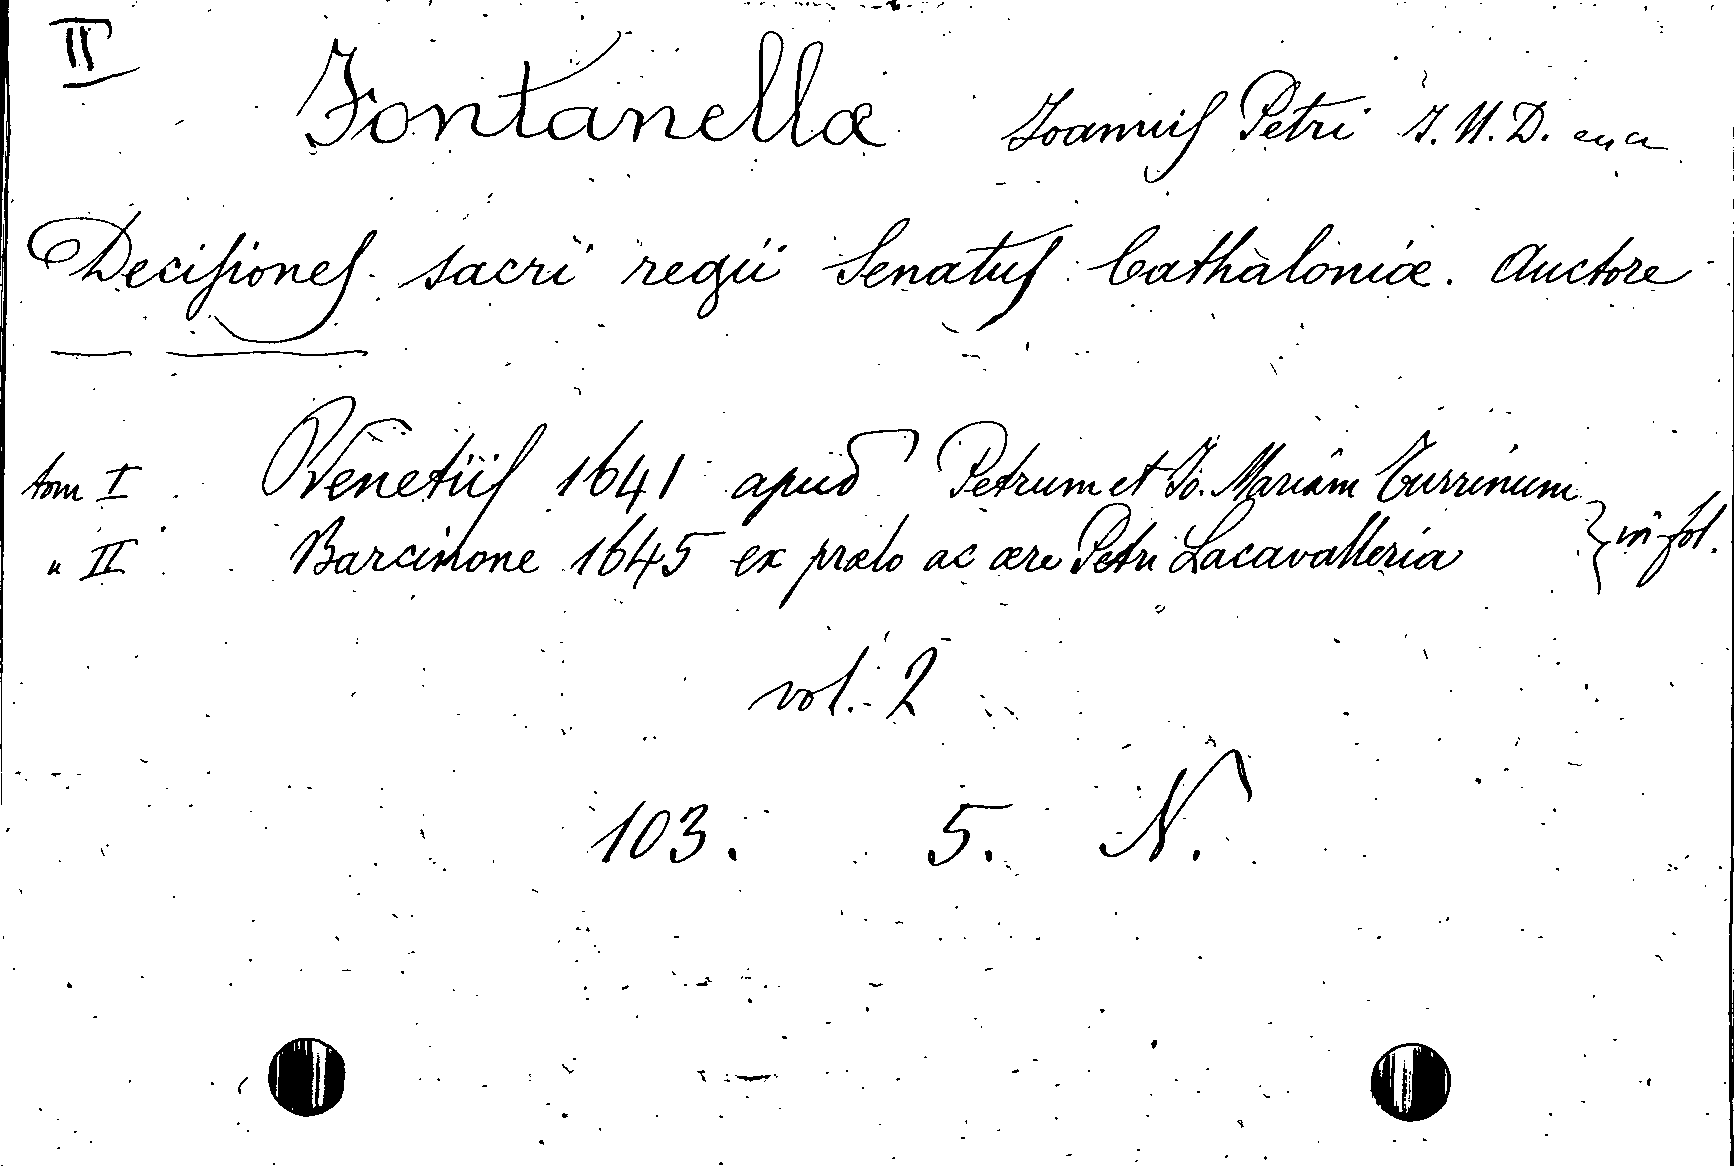 II
Fontanellæ Joannis Petri J. U. D.
Decisiones sacri regii Senatus Cathaloniæ. Auctore
tom I Venetiis 1641 apud Petrum et Jo. Mariam Turrinum
" II Barcinone 1645 ex prælo ac ære Petri Lacavalleria } in fol.
vol. 2
103. 5. N.